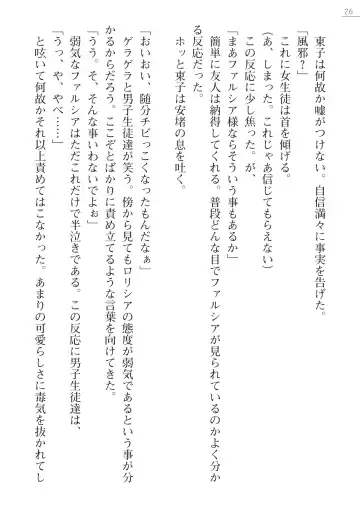 26
東子は何故か嘘がつけない。自信満々に事実を告げた。
「風邪？」
これに女生徒は首を傾げる。
（あ、しまった。これじゃあ信じてもらえない）
この反応に少し焦った。が、
「まあファルシア様ならそういう事もあるか」
簡単に友人は納得してくれる。普段どんな目でファルシアが見られているのかよく分か
る反応だった。
ホッと東子は安堵の息を吐く。
「おいおい、随分チビっこくなったもんだなぁ」
ゲラゲラと男子生徒達が笑う。傍から見てもロリシアの態度が弱気であるという事が分
かるからだろう。ここぞとばかりに責め立てるような言葉を向けてきた。
「うう。そ、そんな事いわないでよぉ」
弱気なファルシアはただこれだけで半泣きである。この反応に男子生徒達は、
「うっ、や、やべ……」
と呟いて何故かそれ以上責めてはこなかった。あまりの可愛らしさに毒気を抜かれてし